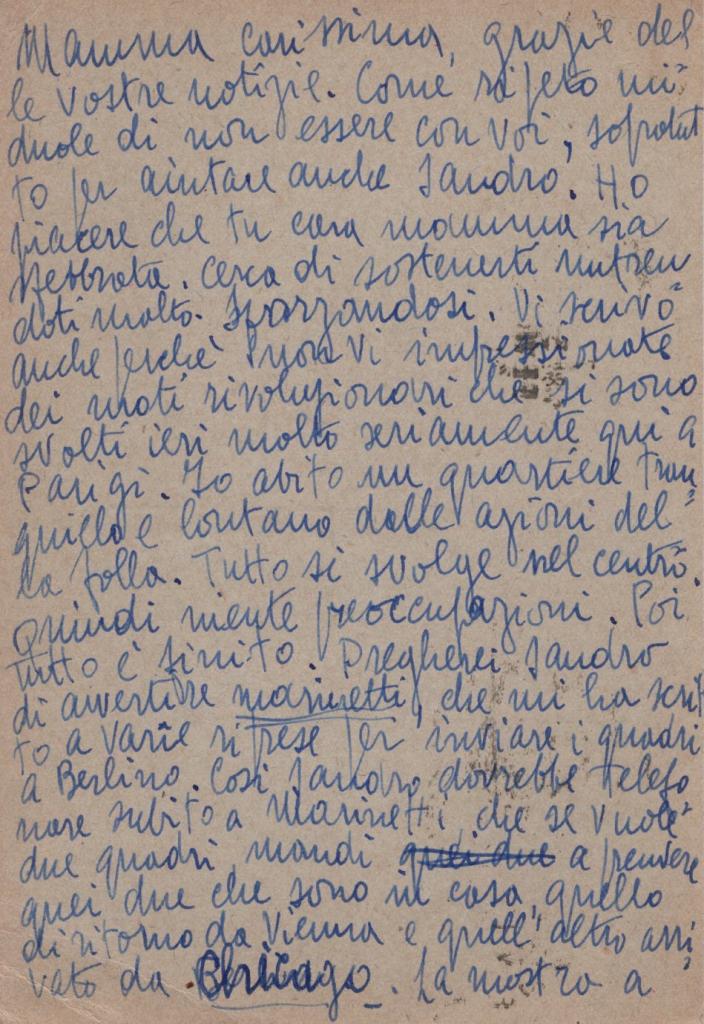 Mamma carissima, grazie del
le vostre notizie. Come ripeto mi
duole di non essere con voi, sopratut
to per aiutare anche Sandro. Ho
piacere che tu cara mamma sia
sfebbrata. Cerca di sostenerti nutren
doti molto. Sforzandosi. Vi scrivo
anche perché non vi impressionate
dei moti rivoluzionari che si sono
svolti ieri molto seriamente qui a
Parigi. Io abito un quartiere tran
quillo e lontano dalle azioni del
la folla. Tutto si svolge nel centro.
Quindi niente preoccupazioni. Poi
tutto è finito. Pregherei Sandro
di avvertire Marinetti, che mi ha scrit
to a varie riprese per inviare i quadri
a Berlino. Così Sandro dovrebbe telefo
nare subito a Marinetti, che se vuole
due quadri mandi quei due a prendere
quei due che sono in casa, quello
di ritorno da Vienna e quell'altro arri
vato da Chicago. La mostra a